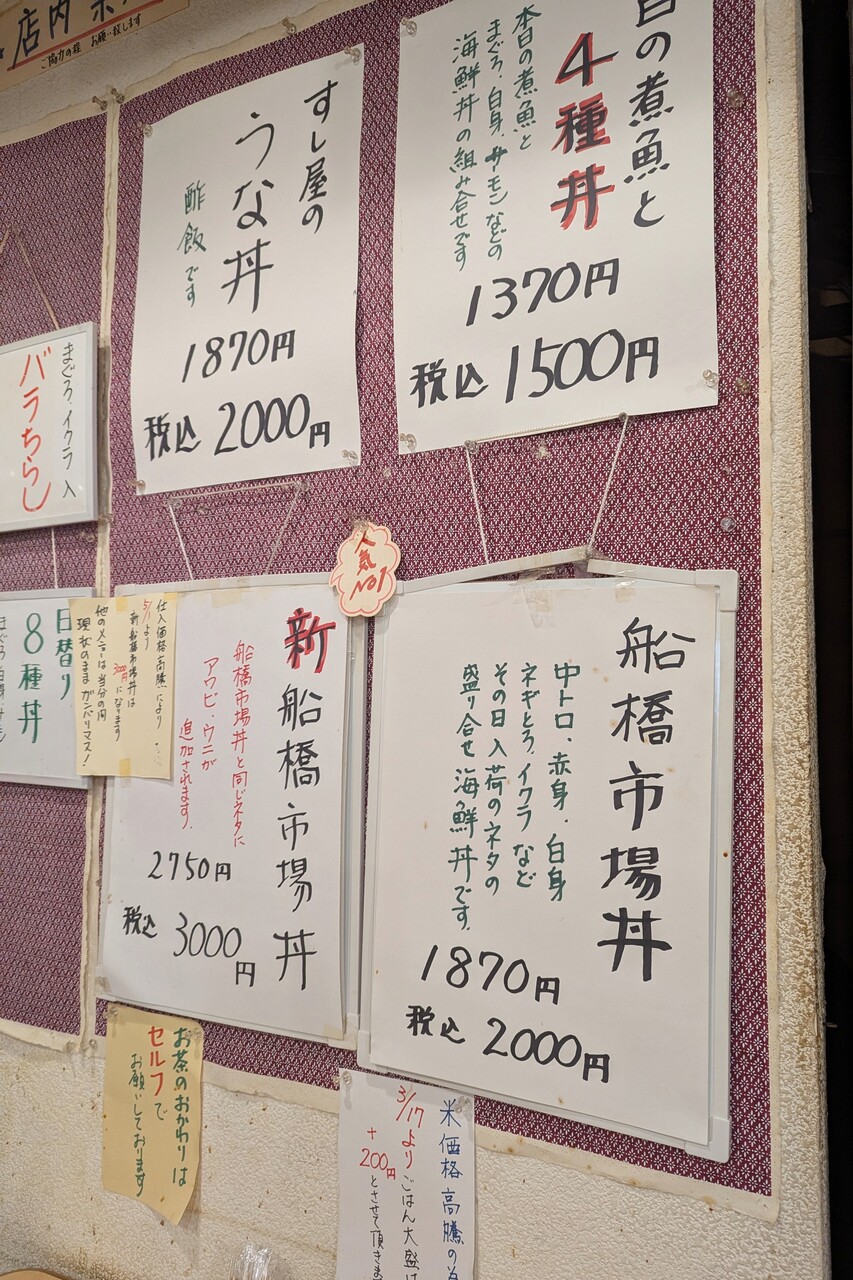 店内
ご協力の程 お願い致します
日の煮魚と
4種丼
本日の煮魚と
まぐろ、白身、サーモンなどの
海鮮丼の組み合せです
1370円
税込 1500円
すし屋の
うな丼
酢飯です
1870円
税込 2000円
まぐろ、イクラ入
バラちらし
日替り
8種丼
まぐろ 白身 サーモン
仕入価格高騰により
5/1より
新船橋市場丼は
300円になります
他のメニューは当分の間
現状のままガンバリマス!
人気
NO1
新船橋市場丼
船橋市場丼と同じネタに
アワビ・ウニが
追加されます.
2750円
税込 3000円
船橋市場丼
中トロ、赤身、白身
ネギとろ、イクラなど
その日入荷のネタの
盛り合せ海鮮丼です。
1870円
税込 2000円
お茶のおかわりは
セルフで
お願いしております
米価格高騰の為
3/17よりごはん大盛は
+200円とさせて頂きま